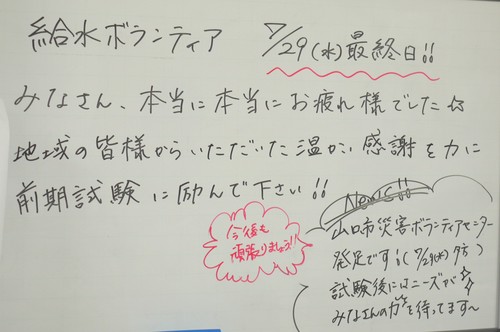 給水ボランティア
7/29(水)最終日!!
みなさん、本当に本当にお疲れ様でした☆
地域の皆様からいただいた温かい感謝を力に
前期試験に励んで下さい!!
今後も
頑張りましょう!!
News!!
山口市災害ボランティアセンター
発足です!(7/29(水)夕方)
試験後にはニーズが
みなさんの力を待ってます〜